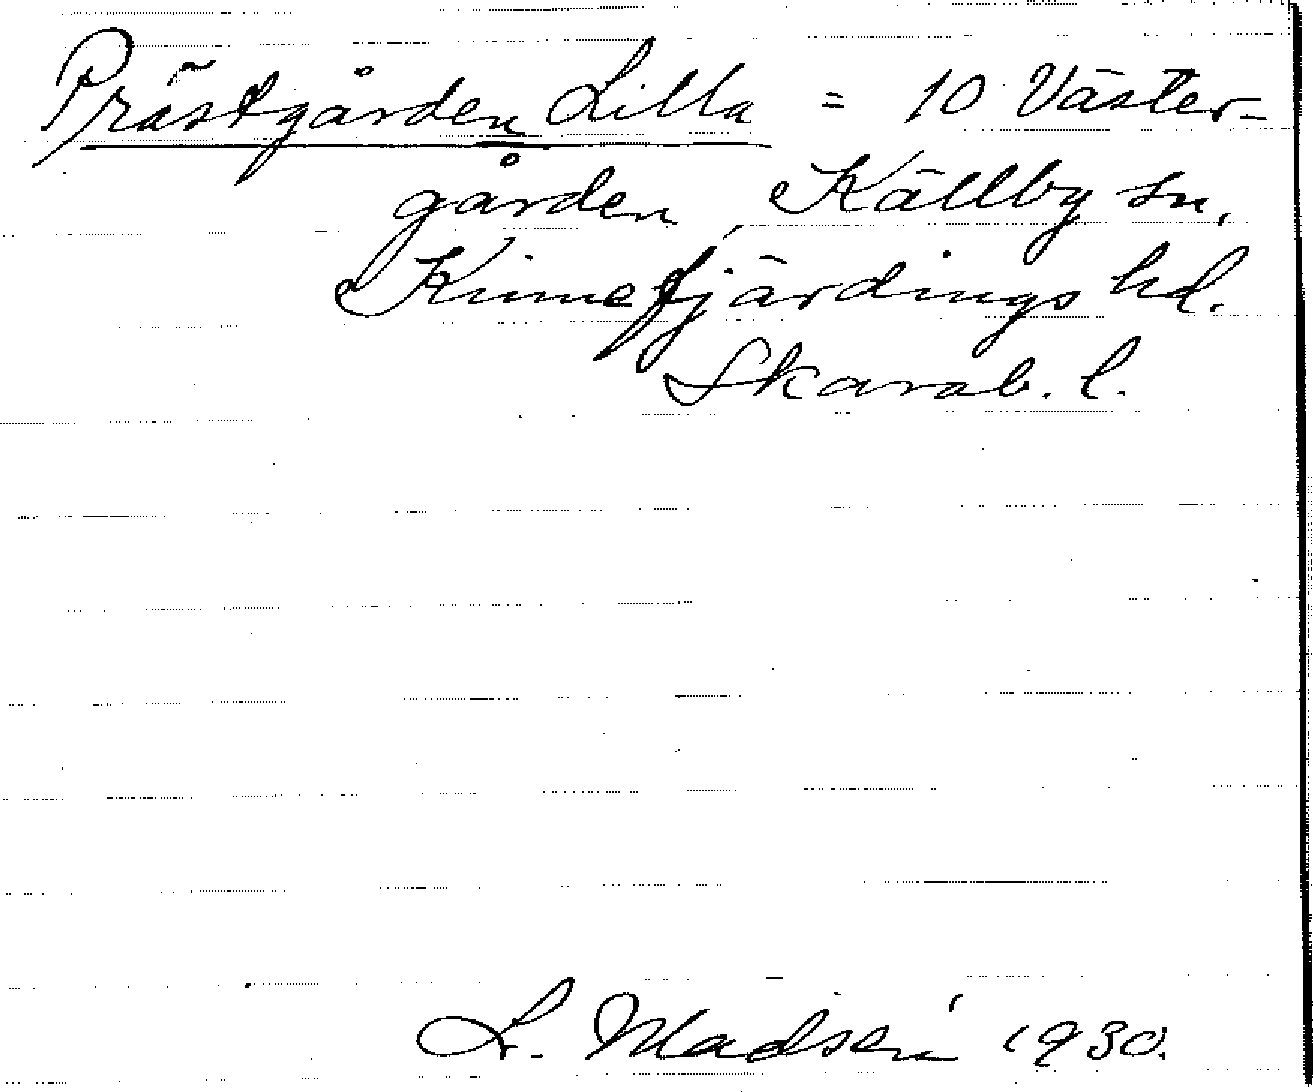 Prästgården Lilla = 10 Väster-
gården, Källby sn,
Kinnefjärdings hd.
Skarab. l.
L. Madsén 1930.